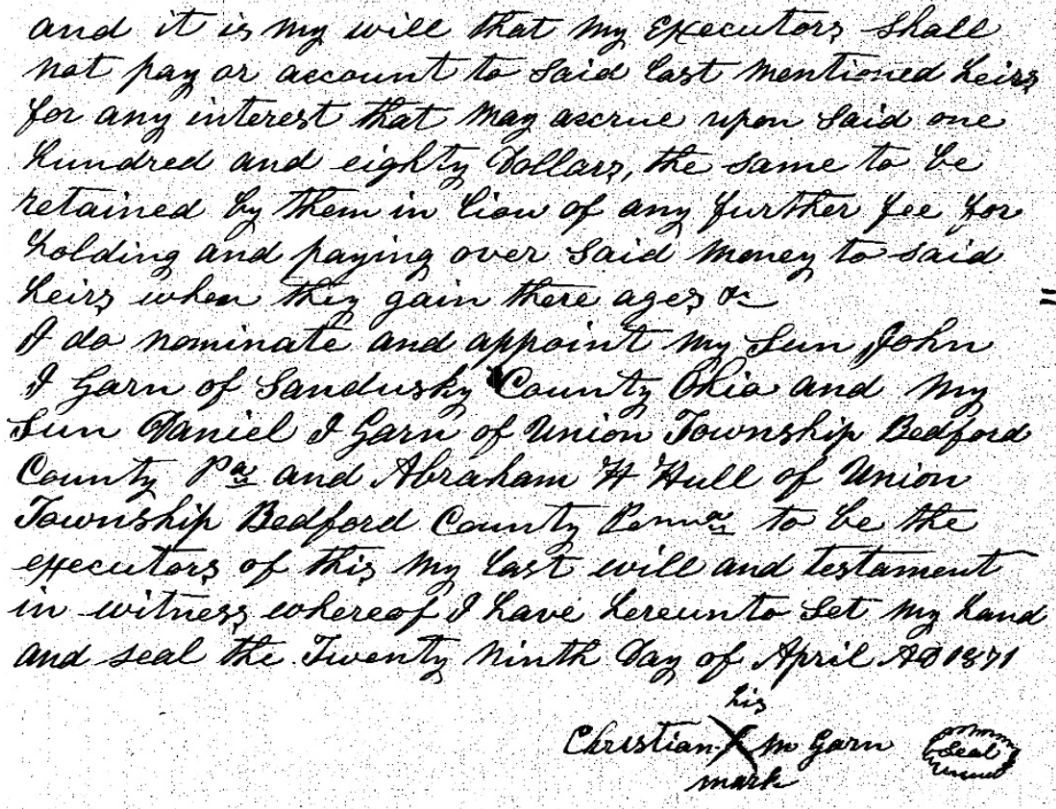 and it is my will that my Executors shall
not pay or account to said last mentioned heirs
for any interest that may accrue upon said one
hundred and eighty Dollars, the same to be
retained by them in liow of any further fee for
holding and paying over said money to said
heirs when they gain there ages &c
I do nominate and appoint my Sun John
I Garn of Sandusky County Ohio and my
Sun Daniel I Garn of Union Township Bedford
County Pa and Abraham H Hull of Union
Township Bedford County Penna to be the
executors of this my last will and testament
in witness whereof I have hereunto Set my hand
and seal the Twenty Ninth Day of April AD 1871
his
Christian X M Garn Seal
mark